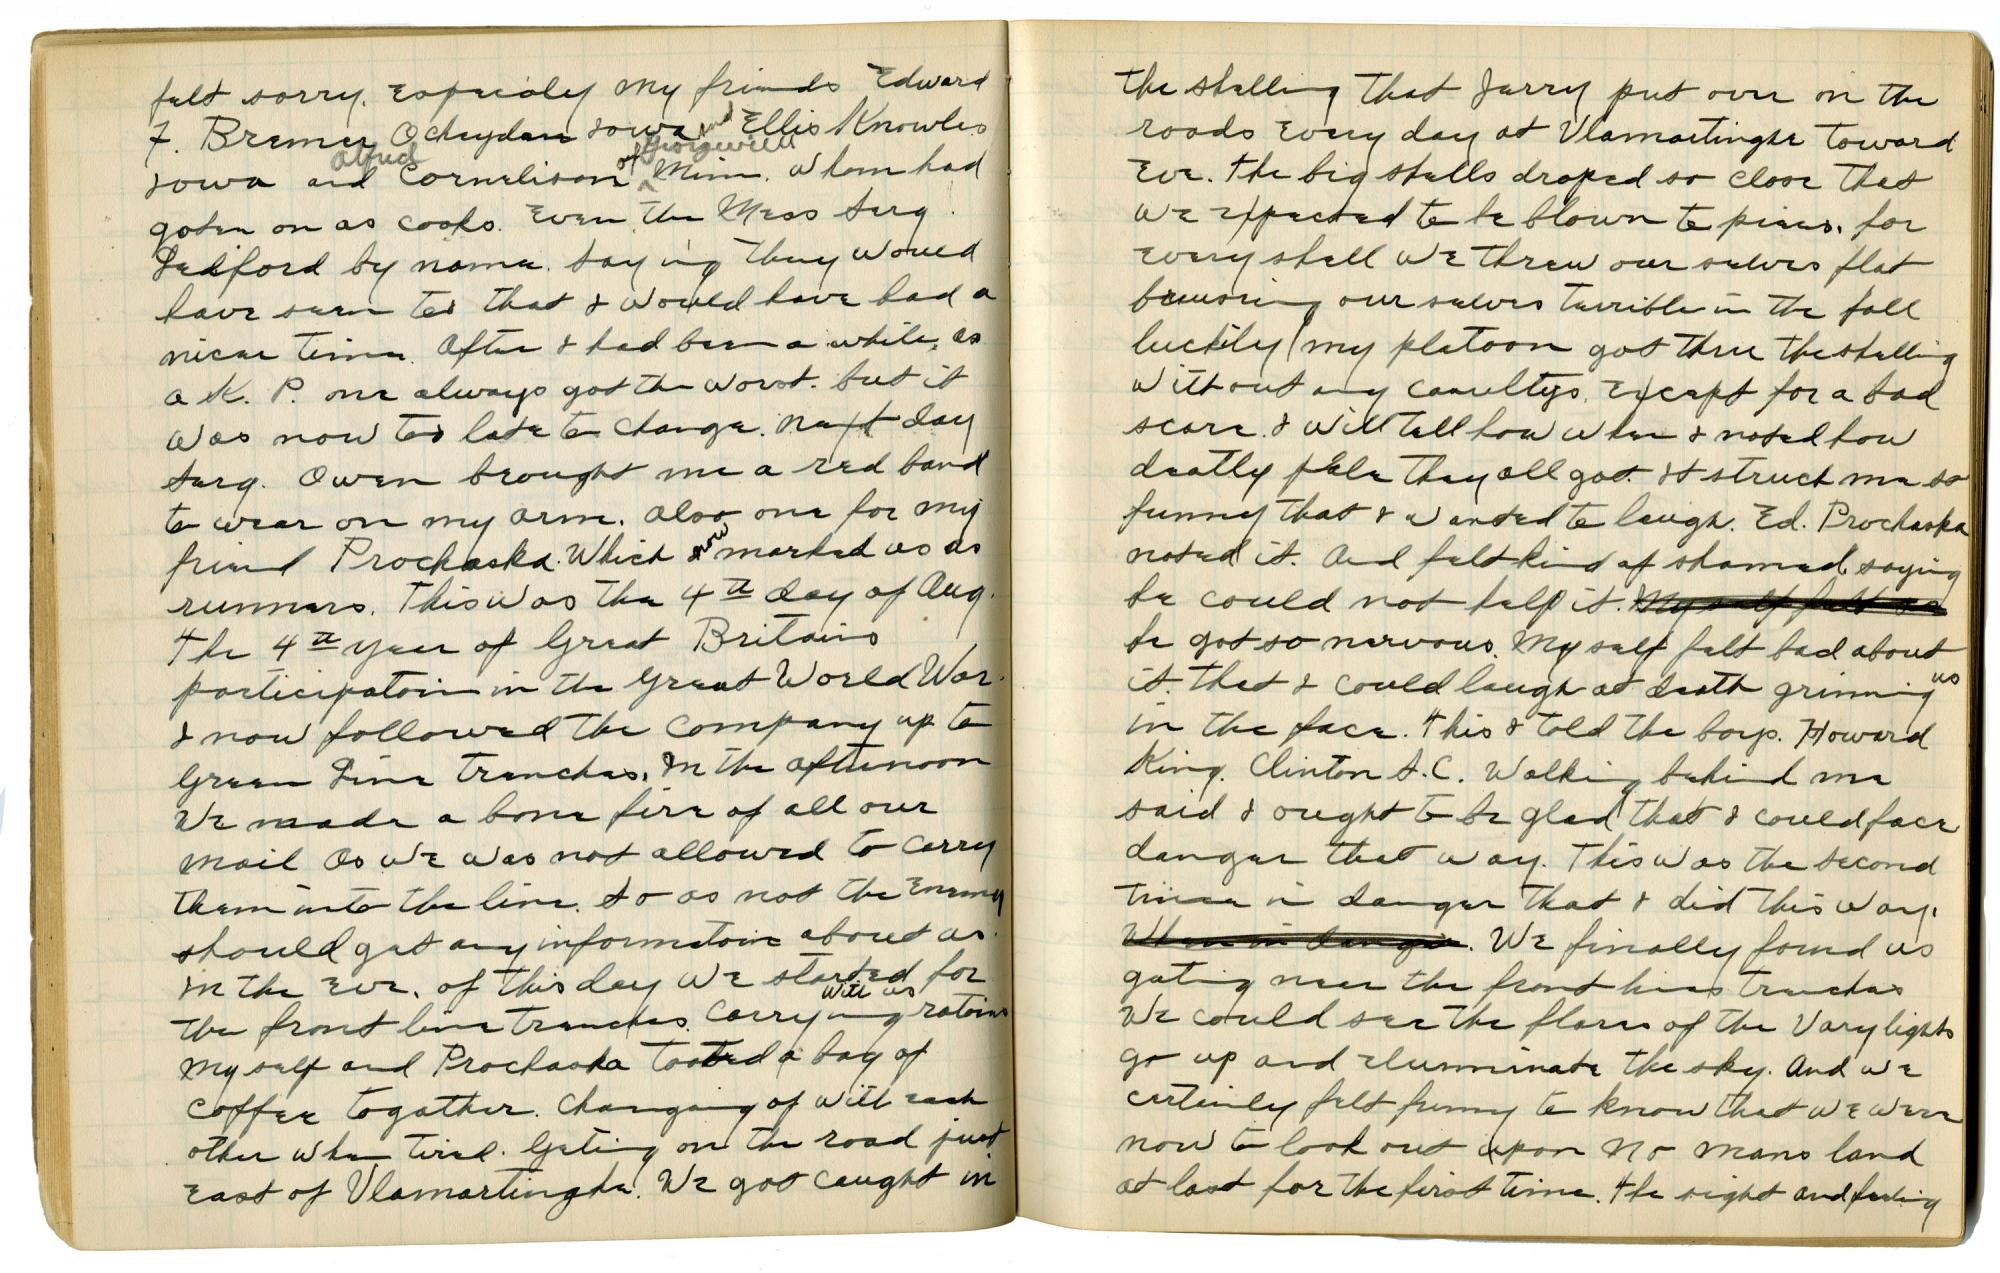 felt sorry. Especialy my friends Edward
F. Bremer Ocheydan Iowa and Ellis Knowles
Iowa and Alfred Cornelison of Georgeville Minn. Whom had
goten on as cooks. Even the Mess Serg.
Ledford by name. Saying they would
have seen to that I would have had a
nicer time. After I had been a while, as
a K. P. one always got the worst. but it
was now to late to change. Next day
Serg. Owen brought me a red band
to wear on my arm. Also one for my
friend Prochaska. Which now marked us as
runners. This was the 4th day of Aug.
The 4th year of Great Britains
participatoin in the Great World War.
I now followed the company up to
Green Line trenches. In the afternoon
We made a bone fire of all our
mail As we was not allowed to carry
them into the line. So as not the Enemy
should get any informatoin about us.
In the Eve. of this day we started for
the front line trenches. Carrying with us ratoins
My self and Prochaska tooted a bag of
coffee together. Changing of with each
other when tired. Geting on the road just
East of Vlamartinghe. We got caught in
the shelling that Jarry put over on the
roads Every day at Vlamartinghe toward
Eve. The big shells droped so close that
we expected to be blown to pieces. for
every shell we threw our selves flat
bruising our selves terrible in the fall
luckily my platoon got thru the shelling
without any caultys. Except for a bad
scare. I will tell how when I noted how
deatly pale they all got. It struck me so
funny that I wanted to laugh. Ed. Prochaska
noted it. And felt kind of shamed, saying
he could not help it. My self felt so
he got so nervous. My self felt bad about
it. that I could laugh at death grinning us
in the face. This I told the boys. Howard
King. Clinton S.C. Walking behind me
said I ought to be glad that I could face
danger that way. This was the second
time in danger that I did this way.
When in danger. We finally found us
geting near the front lines trenches
We could see the flares of the Vary lights
go up and elumminate the sky. And we
certinly felt funny to know that we were
now to look out upon No Mans land
at last for the first time. The sight and feeling